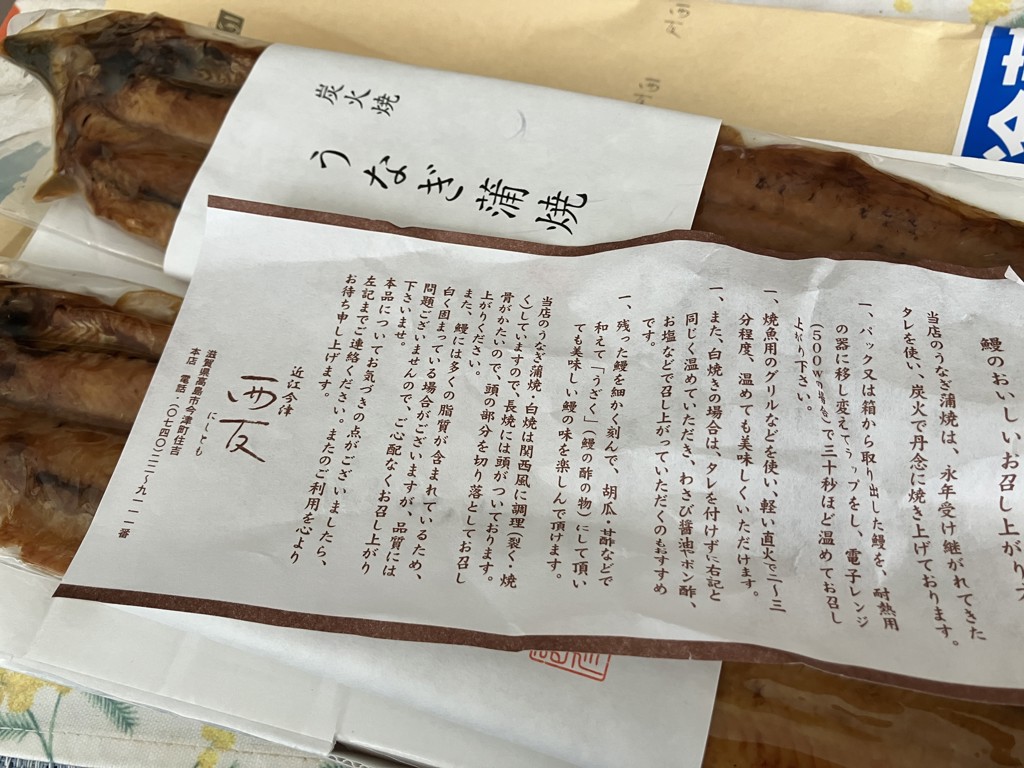 炭火焼
うなぎ蒲焼
鰻のおいしいお召し上がり方
当店のうなぎ蒲焼は、永年受け継がれてきた
タレを使い、炭火で丹念に焼き上げております。
一、パック又は箱から取り出した鰻を、耐熱用
の器に移し変えてラップをし、電子レンジ
(500wの場合)で三十秒ほど温めてお召し
上がり下さい。
一、焼魚用のグリルなどを使い、軽い直火で二〜三
分程度、温めても美味しくいただけます。
一、また、白焼きの場合は、タレを付けずに右記と
同じく温めていただき、わさび醤油でポン酢、
お塩などで召し上がっていただくのがおすすめ
です。
一、残った鰻を細かく刻んで、胡瓜・茸などで
和えて「うざく」(鰻の酢の物)にして頂い
ても美味しい鰻の味を楽しんで頂けます。
当店のうなぎ蒲焼・白焼は関西風に調理(裂く・焼
く)していますので、長焼には頭がついております。
骨がかたいので、頭の部分を切り落としてお召し
上がりください。
また、鰻には多くの脂質が含まれているため、
白く固まっている場合がございますが、品質には
問題ございませんので、ご心配なくお召し上がり
下さいませ。
本品についてお気づきの点がございましたら、
左記までご連絡ください。またのご利用を心より
お待ち申し上げます。
近江今津
西友
にしとも
滋賀県高島市今津町住吉
本店 電話・〇七四〇)二二〜九一一一番